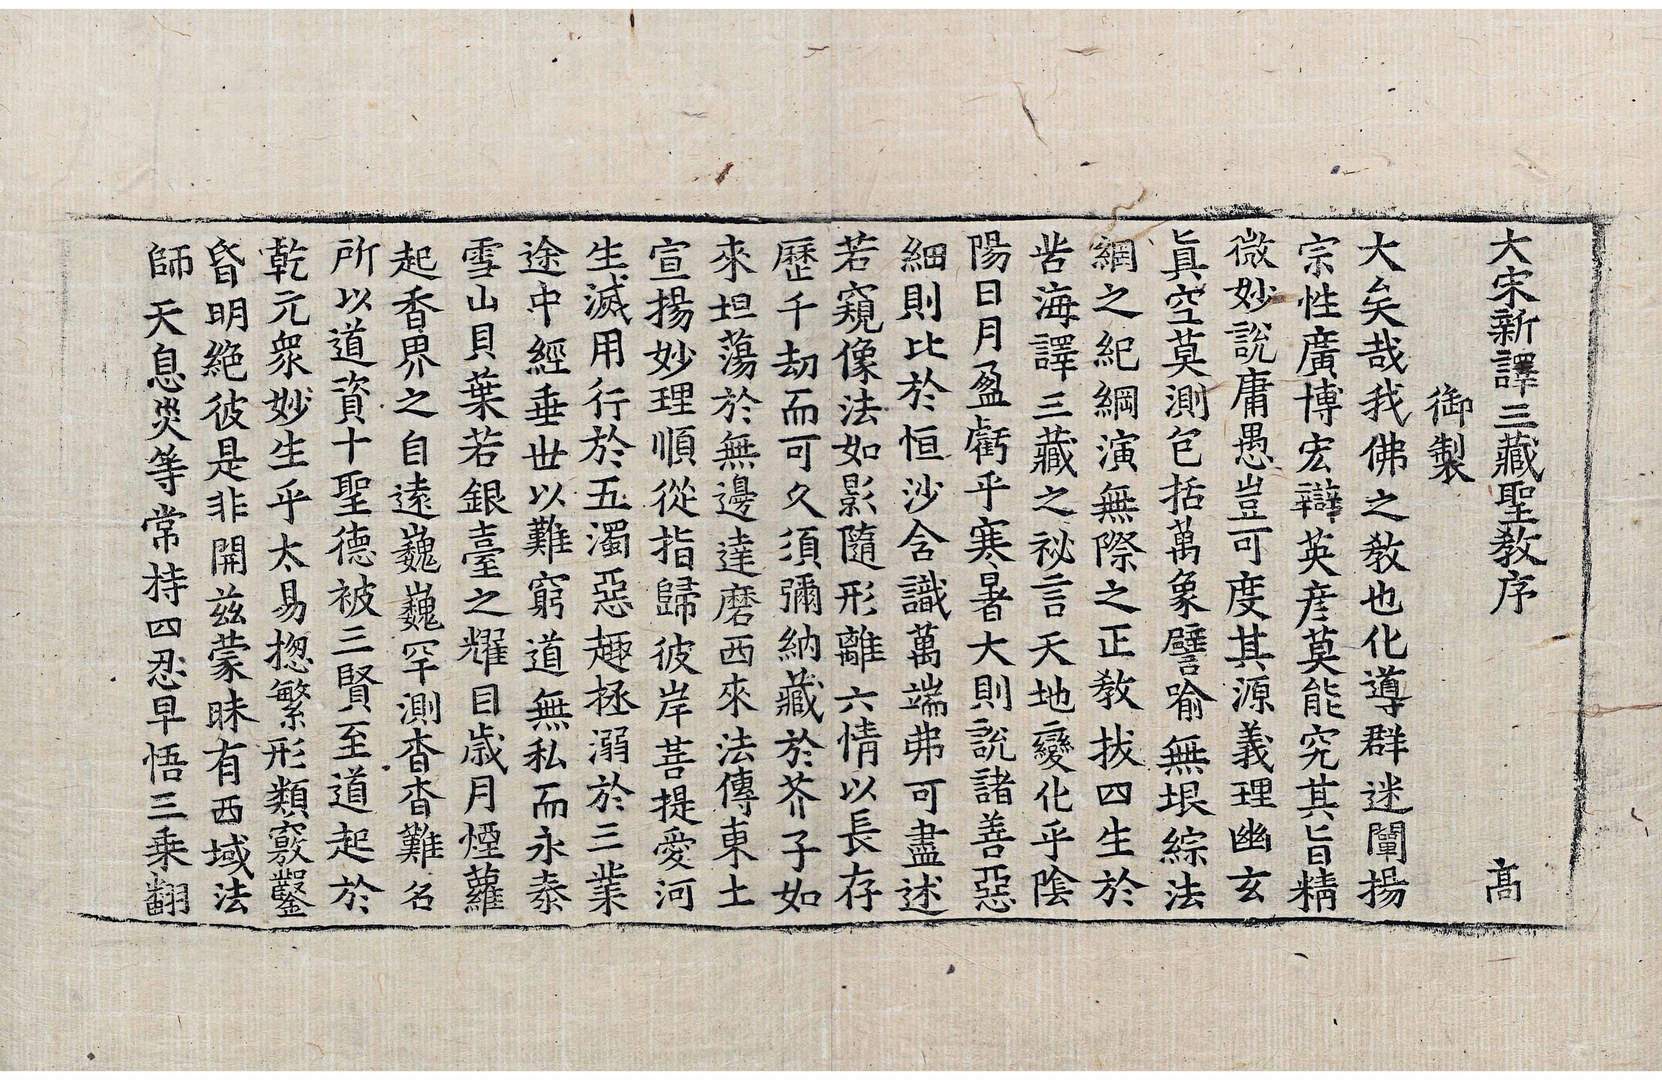 大宋新譯三藏聖敎序 高
御製
大矣哉我佛之敎也化導群迷闡揚
宗性廣博宏辯英彦莫能究其旨精
微妙說庸愚豈可度其源義理幽玄
眞空莫測包括萬象譬喻無垠綜法
網之紀綱演無際之正敎拔四生於
苦海譯三藏之祕言天地變化乎陰
陽日月盈虧乎寒暑大則說諸善惡
細則比於恒沙含識萬端弗可盡述
若窺像法如影隨形離六情以長存
歷千劫而可久須彌納藏於芥子如
來坦蕩於無邊達磨西來法傳東土
宣揚妙理順從指歸彼岸菩提愛河
生滅用行於五濁惡趣拯溺於三業
途中經垂世以難窮道無私而永泰
雪山貝葉若銀臺之耀目歲月煙蘿
起香界之自遠巍巍罕測杳杳難名
所以道資十聖德被三賢至道起於
乾元衆妙生乎太易揔繁形類竅鑿
昏明絶彼是非開兹蒙昧有西域法
師天息災等常持四忍早悟三乘翻